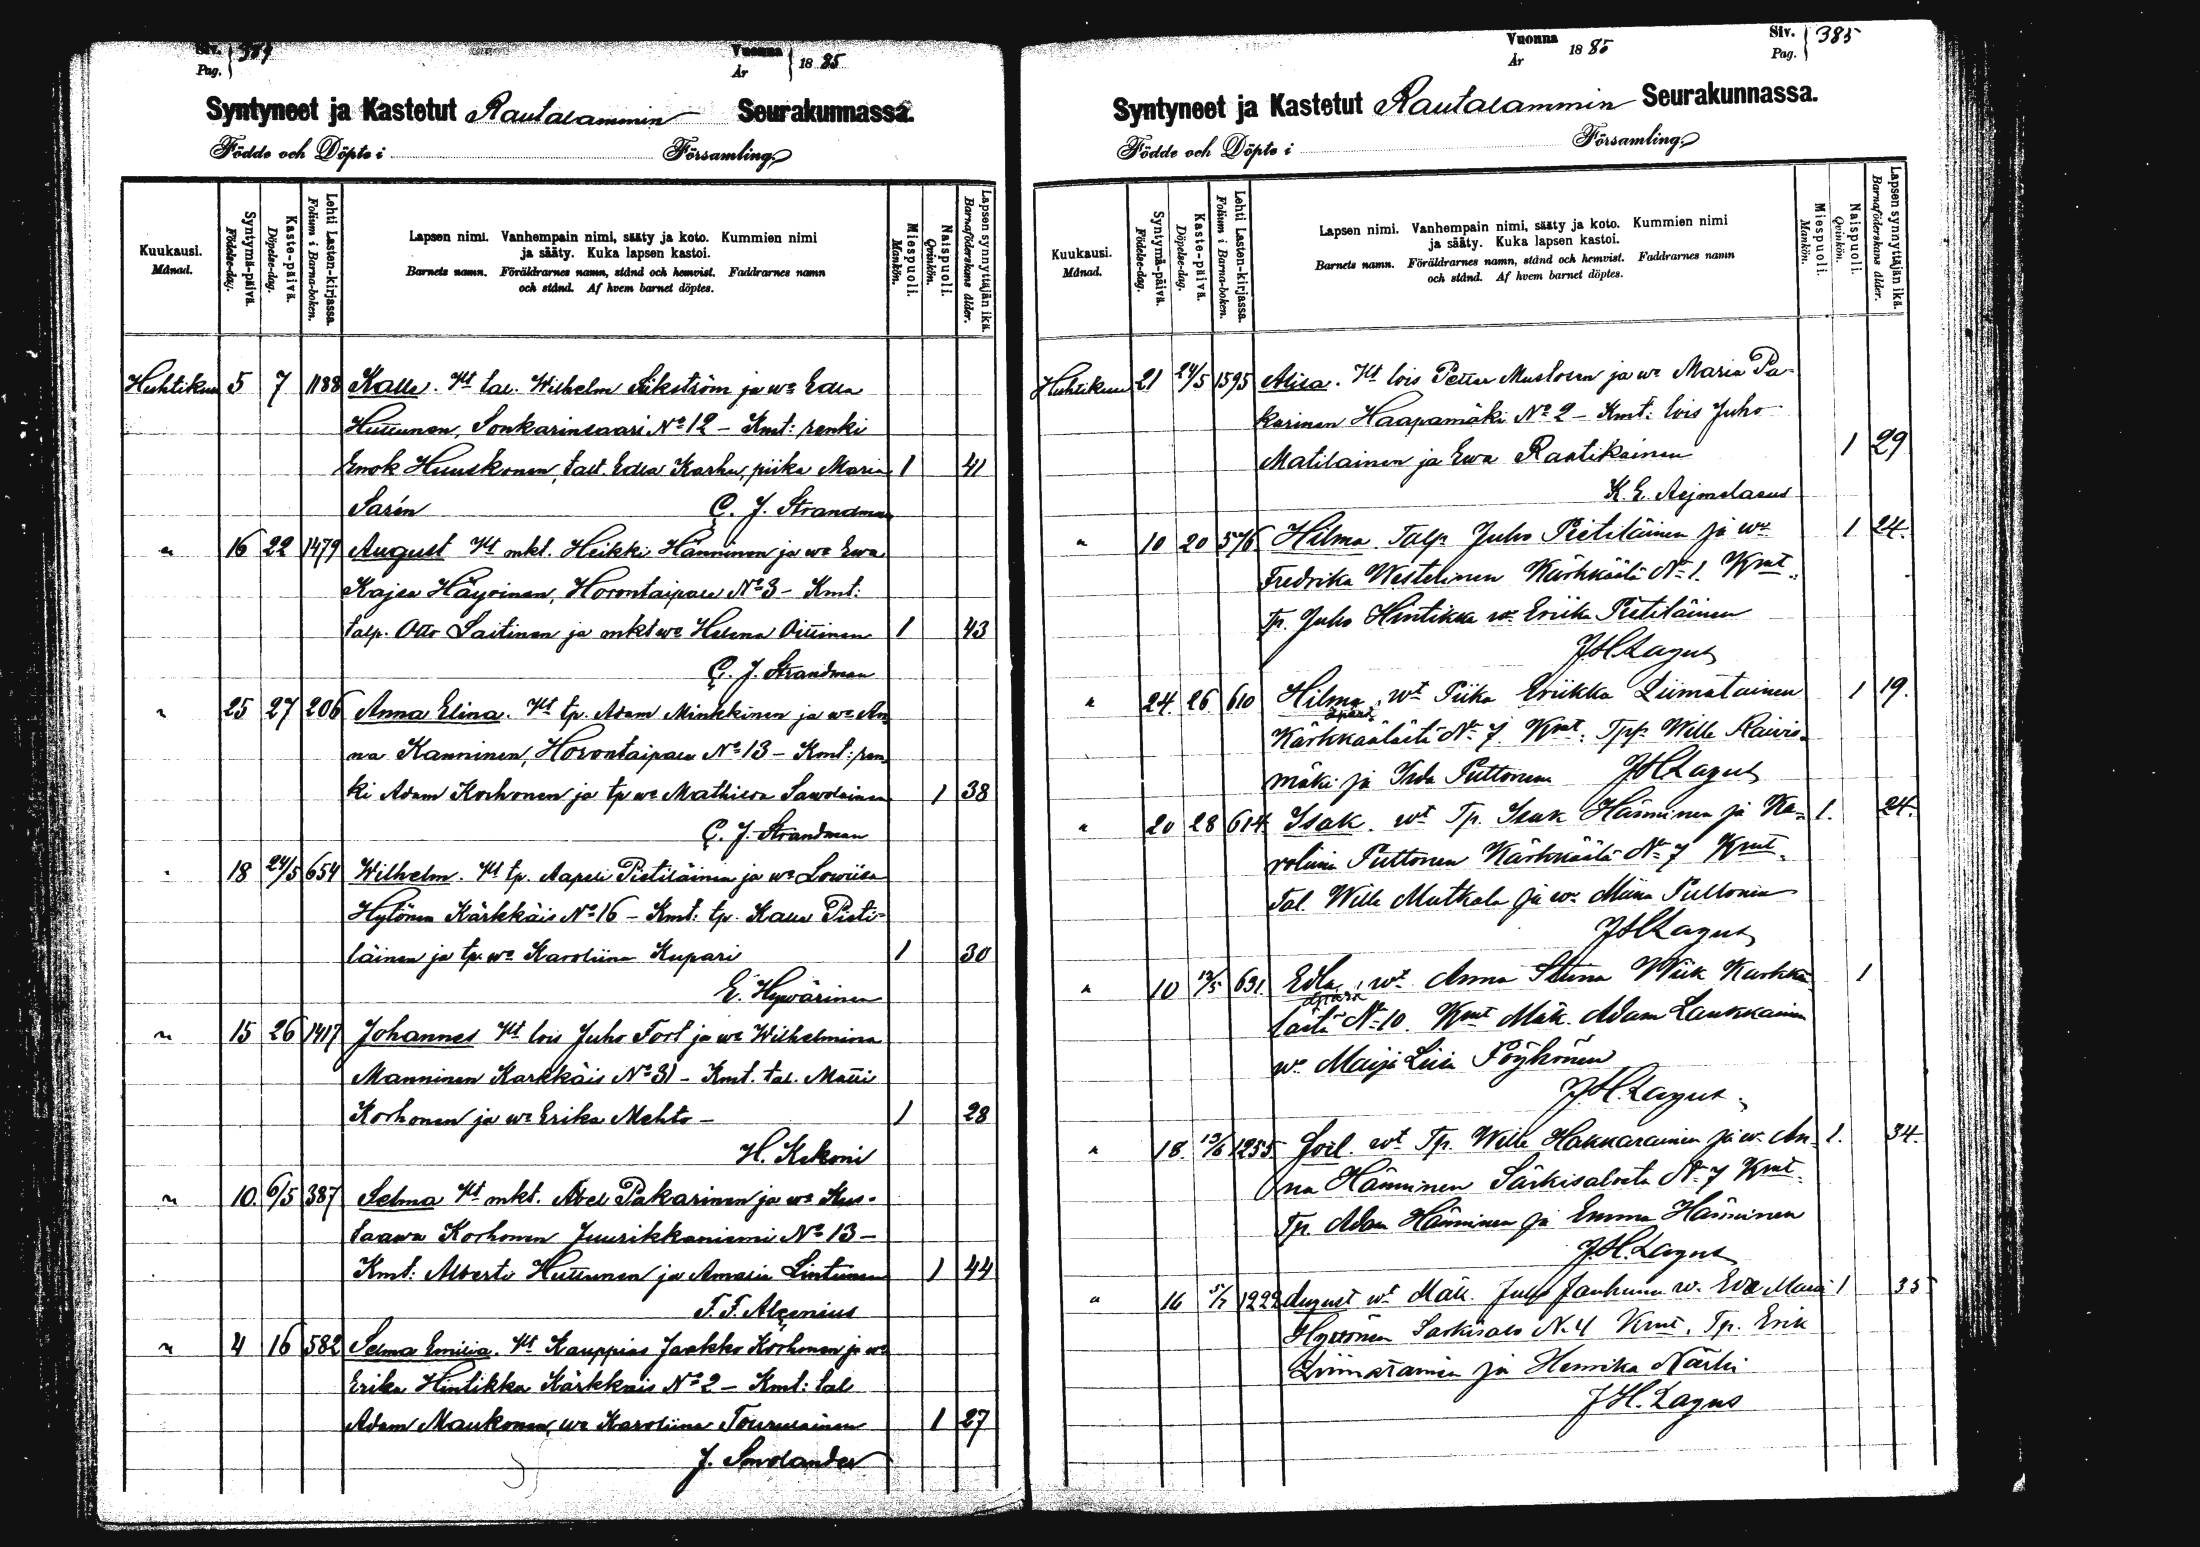 Siv. Pag. 384
Vuonna År 1885
Syntyneet ja Kastetut Rautalammin Seurakunnassa.
Födde och Döpte i Församling
Kuukausi. Månad.
Syntymä-päivä. Födelse-dag.
Kaste-päivä. Döpelse-dag.
Lehti Lasten-kirjassa. Folium i Barna-boken.
Lapsen nimi. Vanhempain nimi, sääty ja koto. Kummien nimi
ja sääty. Kuka lapsen kastoi.
Barnets namn. Föräldrarnes namn, stånd och hemvist. Faddrarnes namn
och stånd. Af hvem barnet döptes.
Miespuoli. Mankön.
Naispuoli. Qvinkön.
Lapsen synnyttäjän ikä. Barnaföderskans ålder.
Huhtikuu 5 7 1188 Kalle. Wt tal. Wilhelm ja wa Edla
Huttunen, Sonkarinsaari No 12 - Kmt: renki
Enok Huuskonen, talt. Edla Karhu, piika Maria 1 41
Sarén C. J. Strandman
" 16 22 1479 August Wt mkt. Heikki Hänninen ja wa Ewa
Kajsa Häyrinen, Horontaipale No 3 - Kmt:
talp. Otto Laitinen ja mkt wa Helena Oittinen 1 43
C. J. Strandman
" 25 27 206 Anna Elina. Wt tp. Adam Minkkinen ja wa An
na Kanninen, Horontaipale No 13 - Kmt: ren
ki Adam Korhonen ja tp wa Mathilda Sawolainen 1 38
C. J. Strandman
" 18 24/5 654 Wilhelm. Wt tp. Aapeli Pietiläinen ja wa Lowiisa
Hytönen Kärkkäis No 16 - Kmt: tp. Kalle Pieti-
läinen ja tp. wa Karoliina Kupari 1 30
E. Hywärinen
" 15 26 1417 Johannes Wt lois Juho Fort ja wa Wilhelmina
Manninen Karkkäis No 31 - Kmt. tal. Matti
Korhonen ja wa Erika Mehto - 1 28
H. Kekoni
" 10. 6/5 387 Selma Wt mkt. Abel Pakarinen ja wa Kus-
taawa Korhonen Juurikkaniemi No 13 -
Kmt: Alberti Huttunen ja Amalia Lintunen 1 44
F. F. Alcenius
" 4 16 582 Selma Emilia. Wt Kauppias Jaakko Korhonen ja wa
Erika Hintikka Kärkkäis No 2 - Kmt: tal
Adam Maukonen, wa Karoliina Tourulainen 1 27
J. Smolander
Vuonna År 1885
Siv. Pag. 385
Syntyneet ja Kastetut Rautalammin Seurakunnassa.
Födde och Döpte i Församling
Kuukausi. Månad.
Syntymä-päivä. Födelse-dag.
Kaste-päivä. Döpelse-dag.
Lehti Lasten-kirjassa. Folium i Barna-boken.
Lapsen nimi. Vanhempain nimi, sääty ja koto. Kummien nimi
ja sääty. Kuka lapsen kastoi.
Barnets namn. Föräldrarnes namn, stånd och hemvist. Faddrarnes namn
och stånd. Af hvem barnet döptes.
Miespuoli. Mankön.
Naispuoli. Qvinkön.
Lapsen synnyttäjän ikä. Barnaföderskans ålder.
Huhtikuu 21 24/5 1595 Alisa. Wt lois Petter Muslosen ja wa Maria Pa-
karinen Haapamäki No 2 - Kmt: lois Juho
Matilainen ja Ewa Raatikainen 1 29
K. E. Aejmelaeus
" 10 20 576 Hilma Talp. Juho Pietiläinen ja wa 1 24.
Fredrika Westelinen Kärkkäälä No 1. Kmt.
Tp. Juho Hintikka wa Eriika Pietiläinen
J H Lagus
" 24. 26. 610 Hilma, wt Piika Eriikka Liimatainen 1 19.
äpärä
Kärkkäälästä No 7. Kmt. Tpp. Wille Raivis-
mäki ja Iida Puttonen J H Lagus
" 20 28 614 Isak. wt Tp. Isak Hänninen ja Ka- 1. 24.
roliina Puttonen Kärkkäälä No 7 Kmt.
Tal. Wille Mutkala ja wa Miina Puttonen
J H Lagus
" 10 12/5 631. Edla, wt Anna Stiina Wiik Karkkä 1
äpärä
lästä No 10. Kmt Mäk. Adam Laukkainen
wa Maija Liisa Pöyhönen
J. H. Lagus.
" 18. 13/6 1255 Joel. wt Tp. Wille Hakkarainen ja wa An- 1. 34
na Hänninen Särkisalosta No 7 Kmt.
Tp. Adam Hänninen ja Emma Hänninen
J. H. Lagus
" 16 5/7 1222 August wt Mäk. Juho Janhunen w. Eva Maria 1 35
Hytönen Sarkisalo N. 4 Kmt. Tp. Erik
Liimatainen ja Henrika Närhi
J H. Lagus